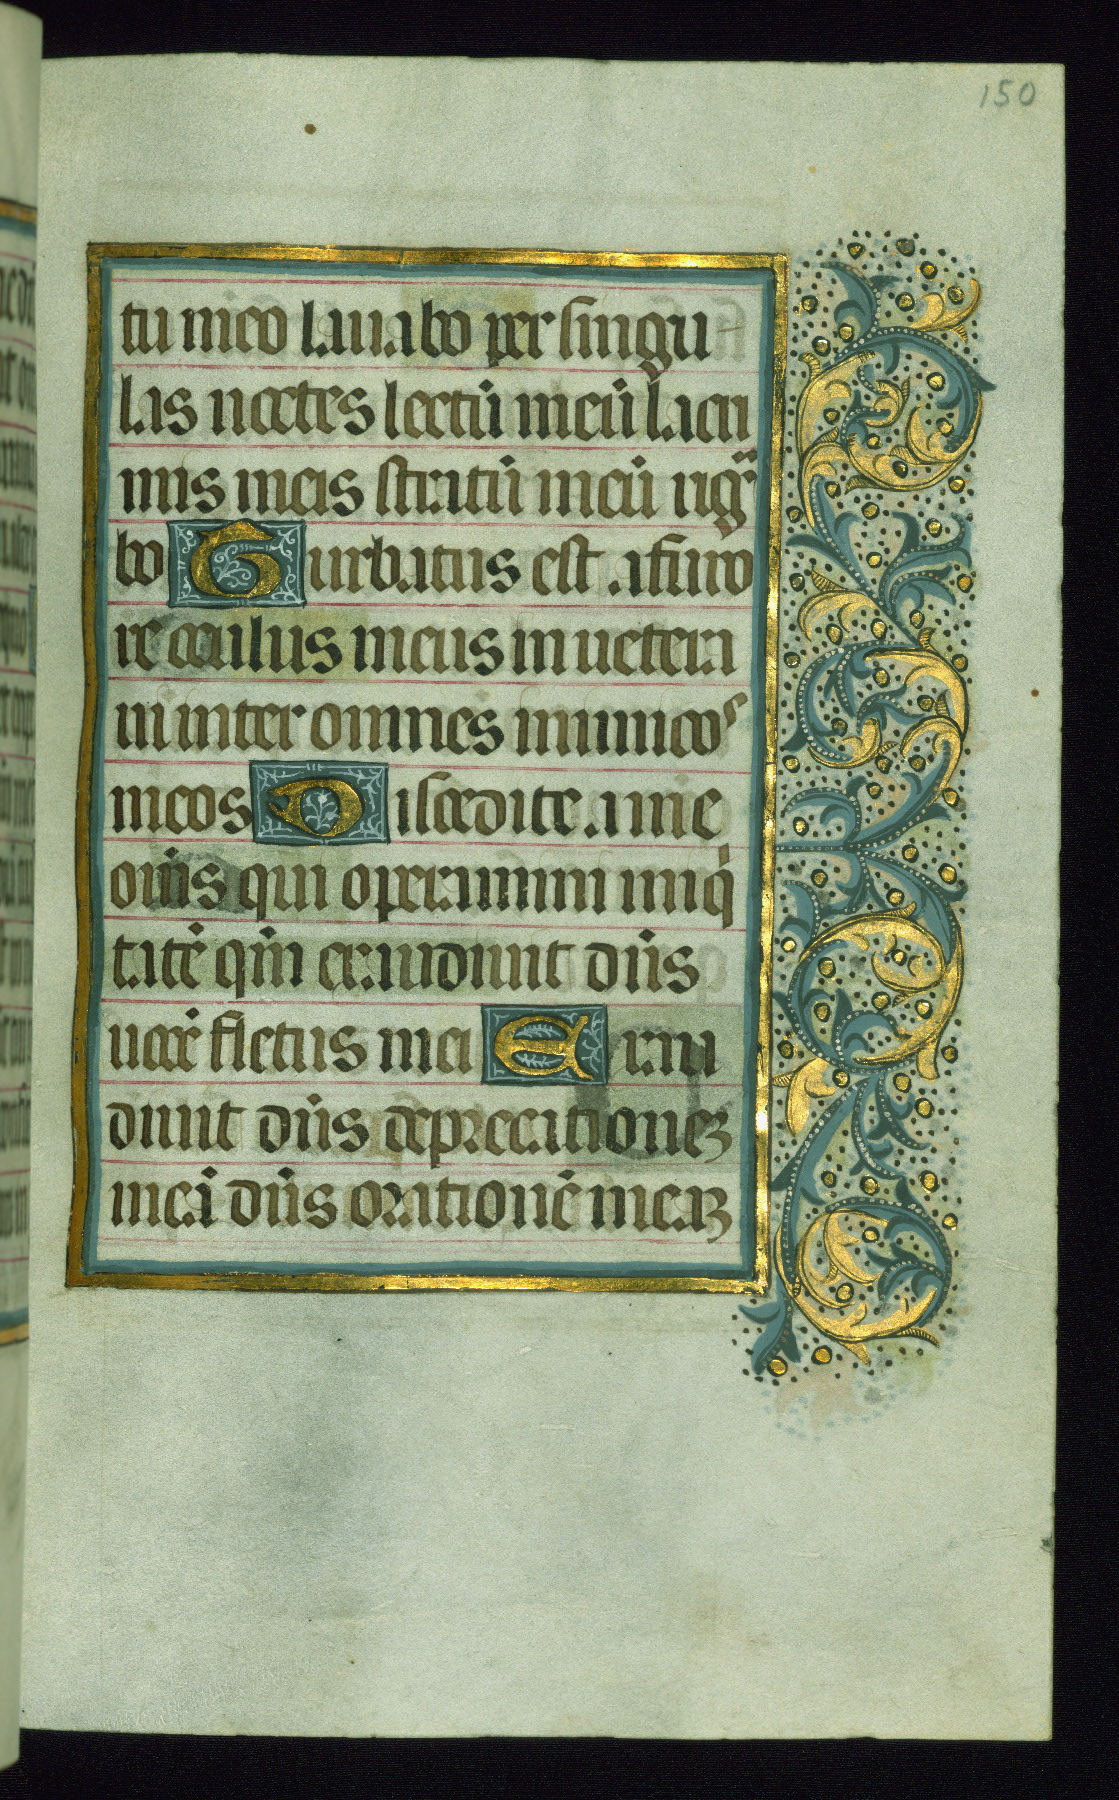 150
tu meo lauabo per singu
las noctes lectū meū lacri
mis meis stratū meū riga
bo Turbatus est a furo
re oculus meus inuetera
ui inter omnes inimicos
meos Discedite a me
om̄s qui operamini iniq
tatē qm̄ exaudiuit dn̄s
uocē fletus mei Exau
diuit dn̄s deprecationeꝫ
meā dn̄s orationē meaꝫ